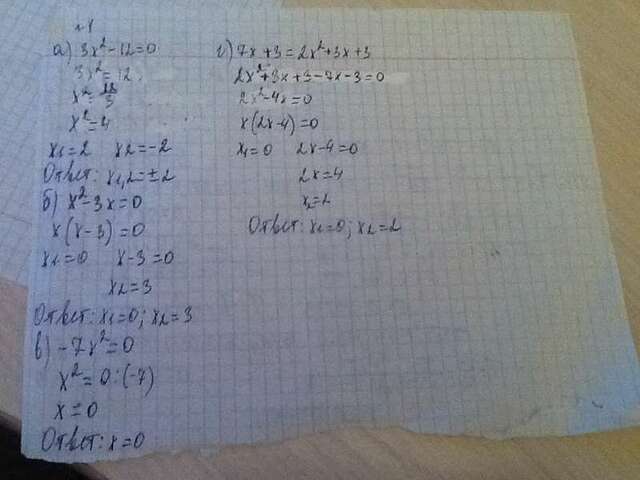 №1
а) 3x²-12=0
3x²=12
x²=12/3
x²=4
x1=2 x2=-2
Ответ: x1,2=±2
б) x²-3x=0
x(x-3)=0
x1=0 x-3=0
x2=3
Ответ: x1=0; x2=3
в) -7x²=0
x²=0:(-7)
x=0
Ответ: x=0
г) 7x+3=2x²+3x+3
2x²+3x+3-7x-3=0
2x²-4x=0
x(2x-4)=0
x1=0 2x-4=0
2x=4
x2=2
Ответ: x1=0; x2=2